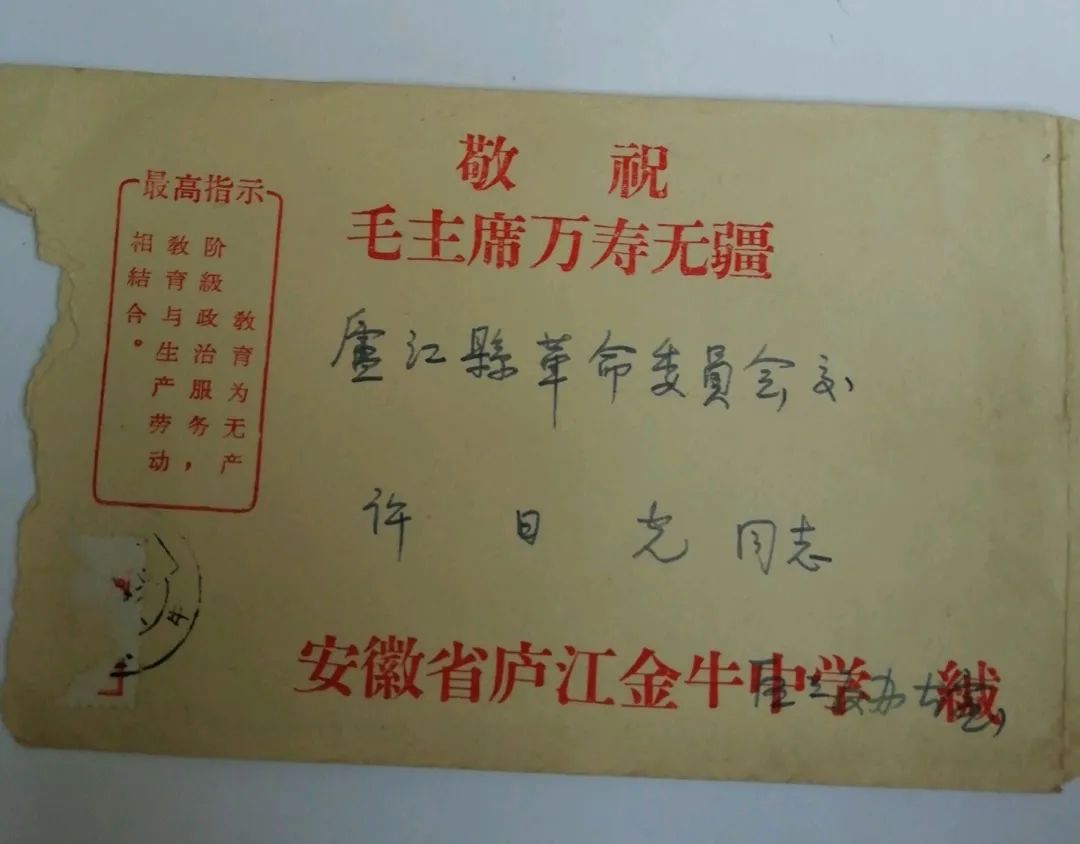 敬祝
毛主席万寿无疆
最高指示
教育为无产
阶級政治服务，
教育与生产劳动
相結合。
廬江縣革命委員会交
许日光同志
安徽省庐江金牛中学 緘